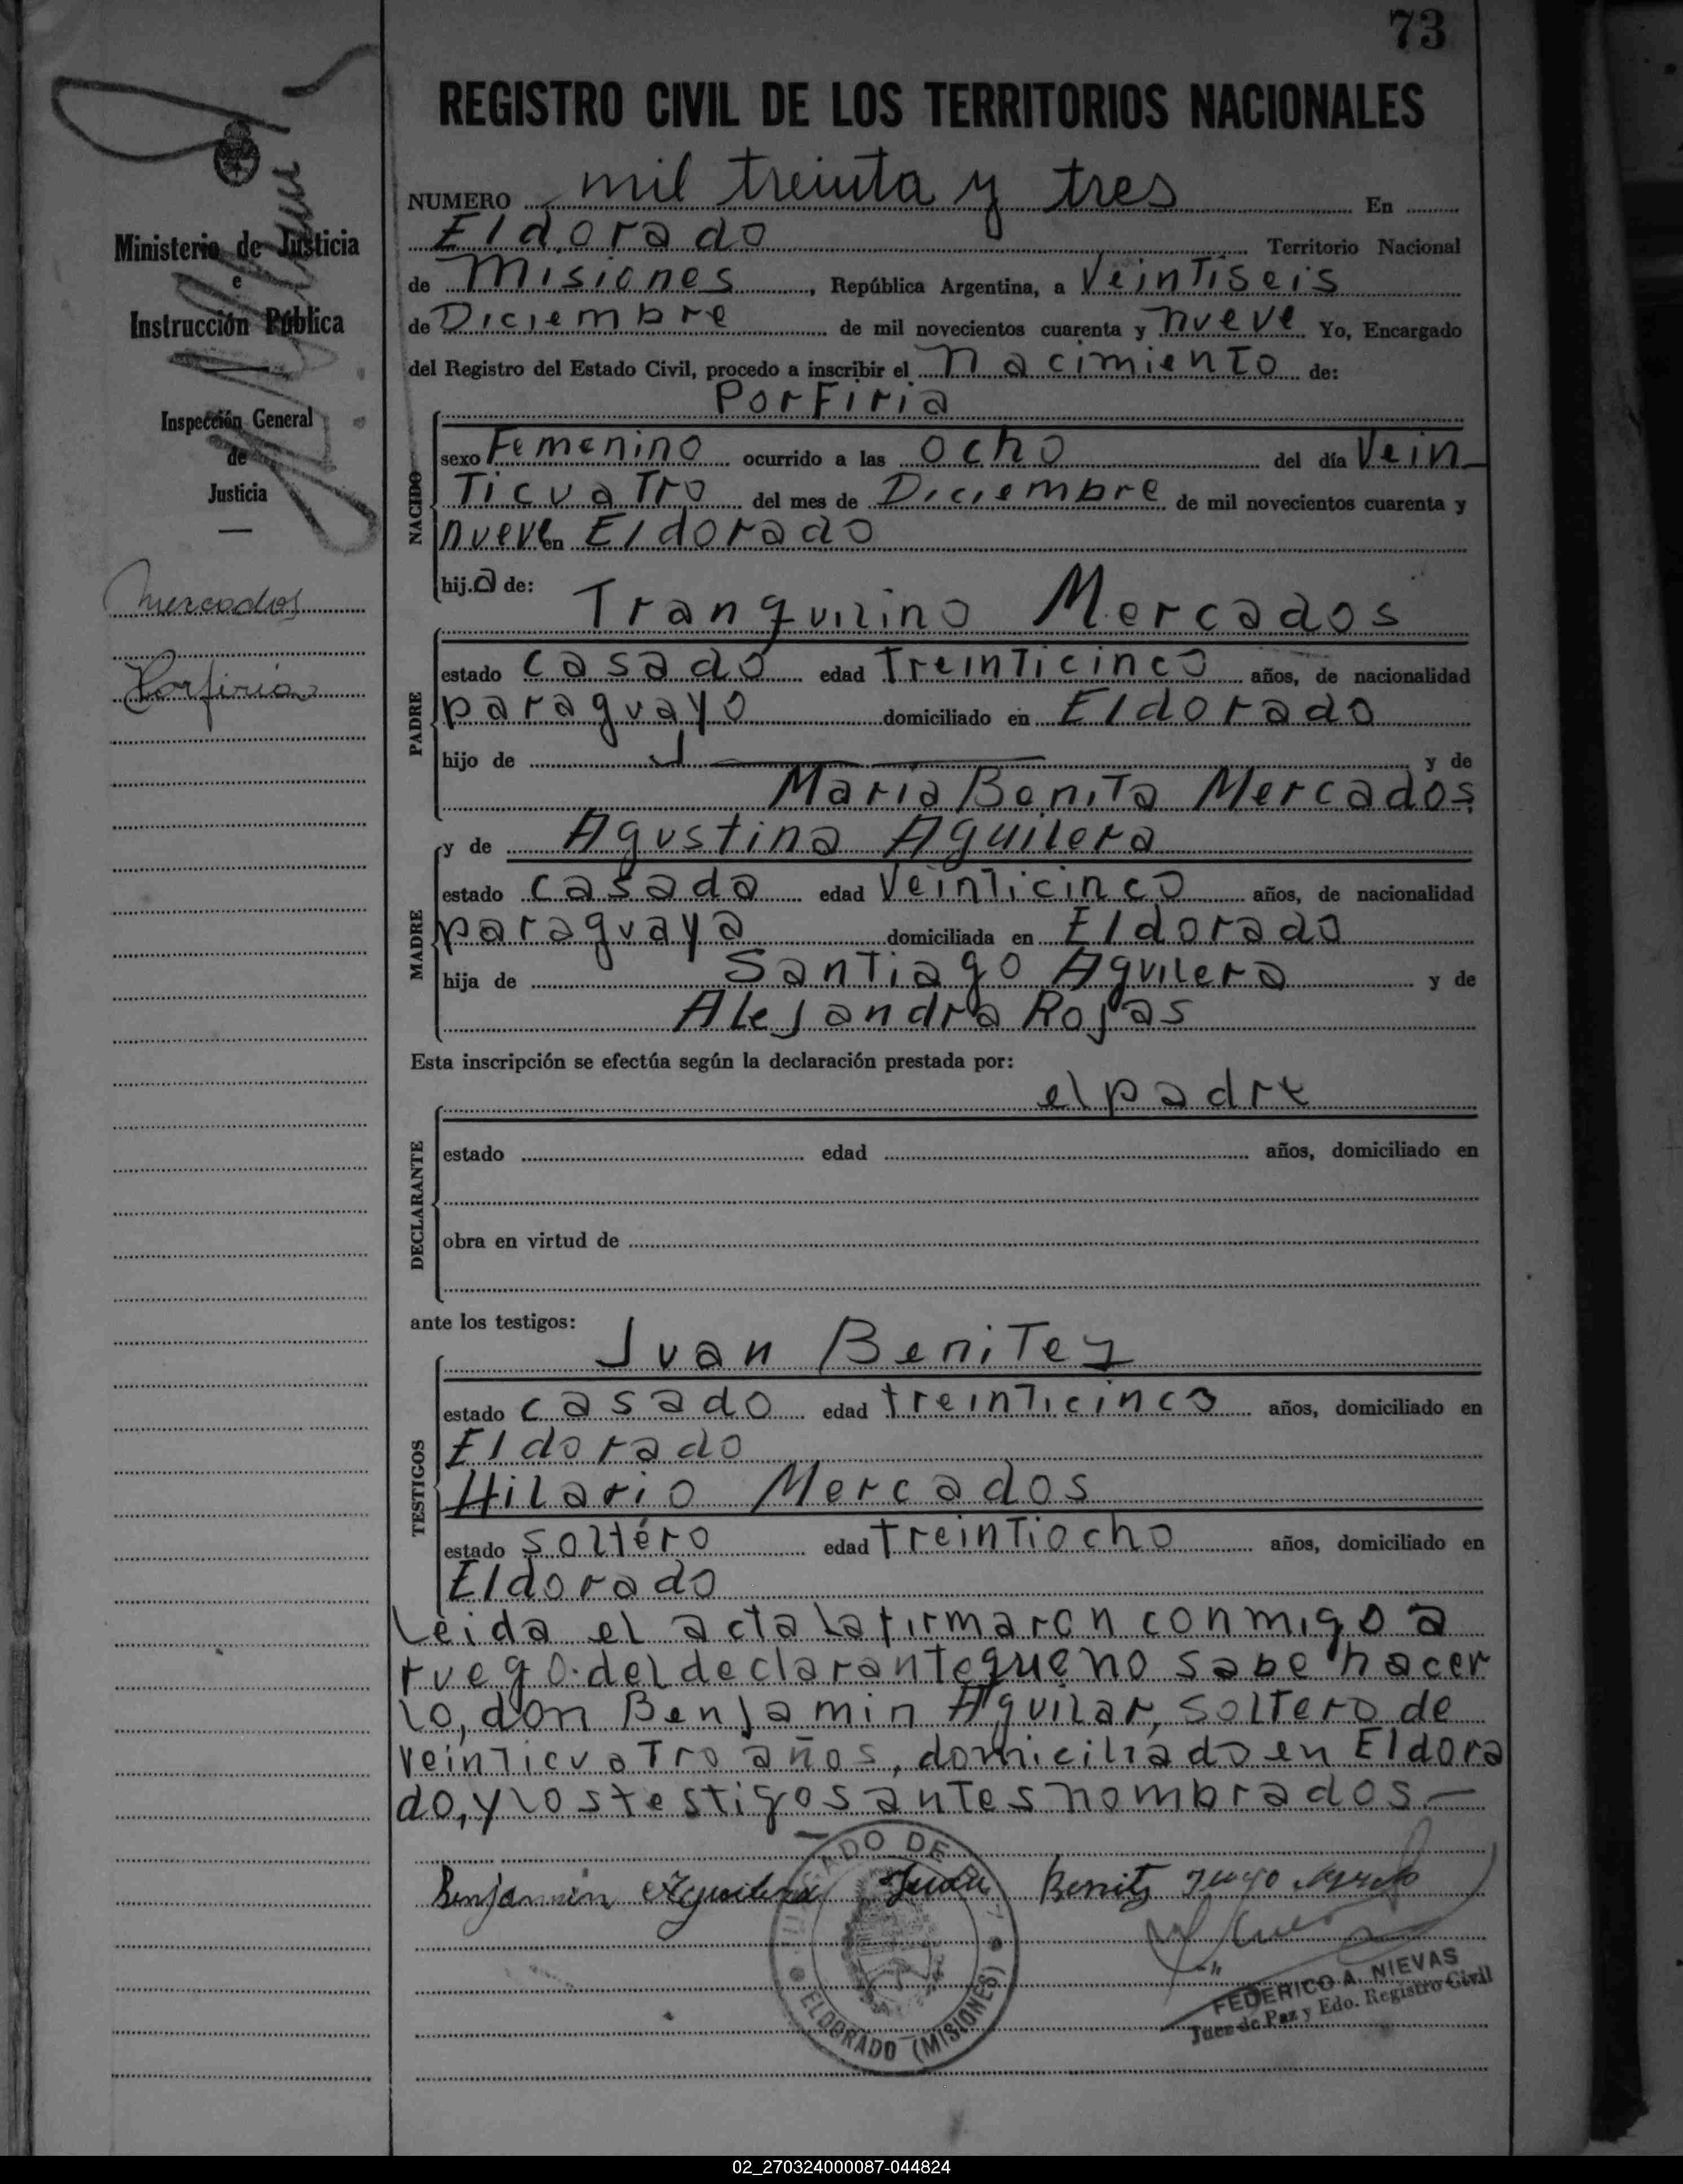 73
REGISTRO CIVIL DE LOS TERRITORIOS NACIONALES
NUMERO mil treinta y tres En
Eldorado Territorio Nacional
de Misiones, República Argentina, a Veintiseis
de Diciembre de mil novecientos cuarenta y nueve Yo, Encargado
del Registro del Estado Civil, procedo a inscribir el nacimiento de:
Porfiria
NACIDO
sexo Femenino ocurrido a las ocho del día Vein
ticuatro del mes de Diciembre de mil novecientos cuarenta y
nueve en Eldorado
hija de: Tranquilino Mercados
PADRE
estado casado edad treinticinco años, de nacionalidad
paraguayo domiciliado en Eldorado
hijo de y de
Maria Benita Mercados
y de Agustina Aguilera
MADRE
estado casada edad Veinticinco años, de nacionalidad
paraguaya domiciliada en Eldorado
hija de Santiago Aguilera y de
Alejandra Rojas
Esta inscripción se efectúa según la declaración prestada por:
el padre
DECLARANTE
estado edad años, domiciliado en
obra en virtud de
ante los testigos:
Juan Benitez
TESTIGOS
estado casado edad treinticinco años, domiciliado en
Eldorado
Hilario Mercados
estado soltéro edad treintiocho años, domiciliado en
Eldorado
Leida el acta la firmaron conmigo a
ruego del declarante que no sabe hacer
lo, don Benjamin Aguilar, soltero de
veinticuatro años, domiciliado en Eldora
do, y los testigos antes nombrados.—
Benjamin Aguilera Juan Benitz
JUZGADO DE PAZ
ELDORADO (MISIONES)
FEDERICO A. NIEVAS
Juez de Paz y Edo. Registro Civil
Ministerio de Justicia
e
Instrucción Pública
Inspección General
de
Justicia
Mercados
Porfiria
02_270324000087-044824